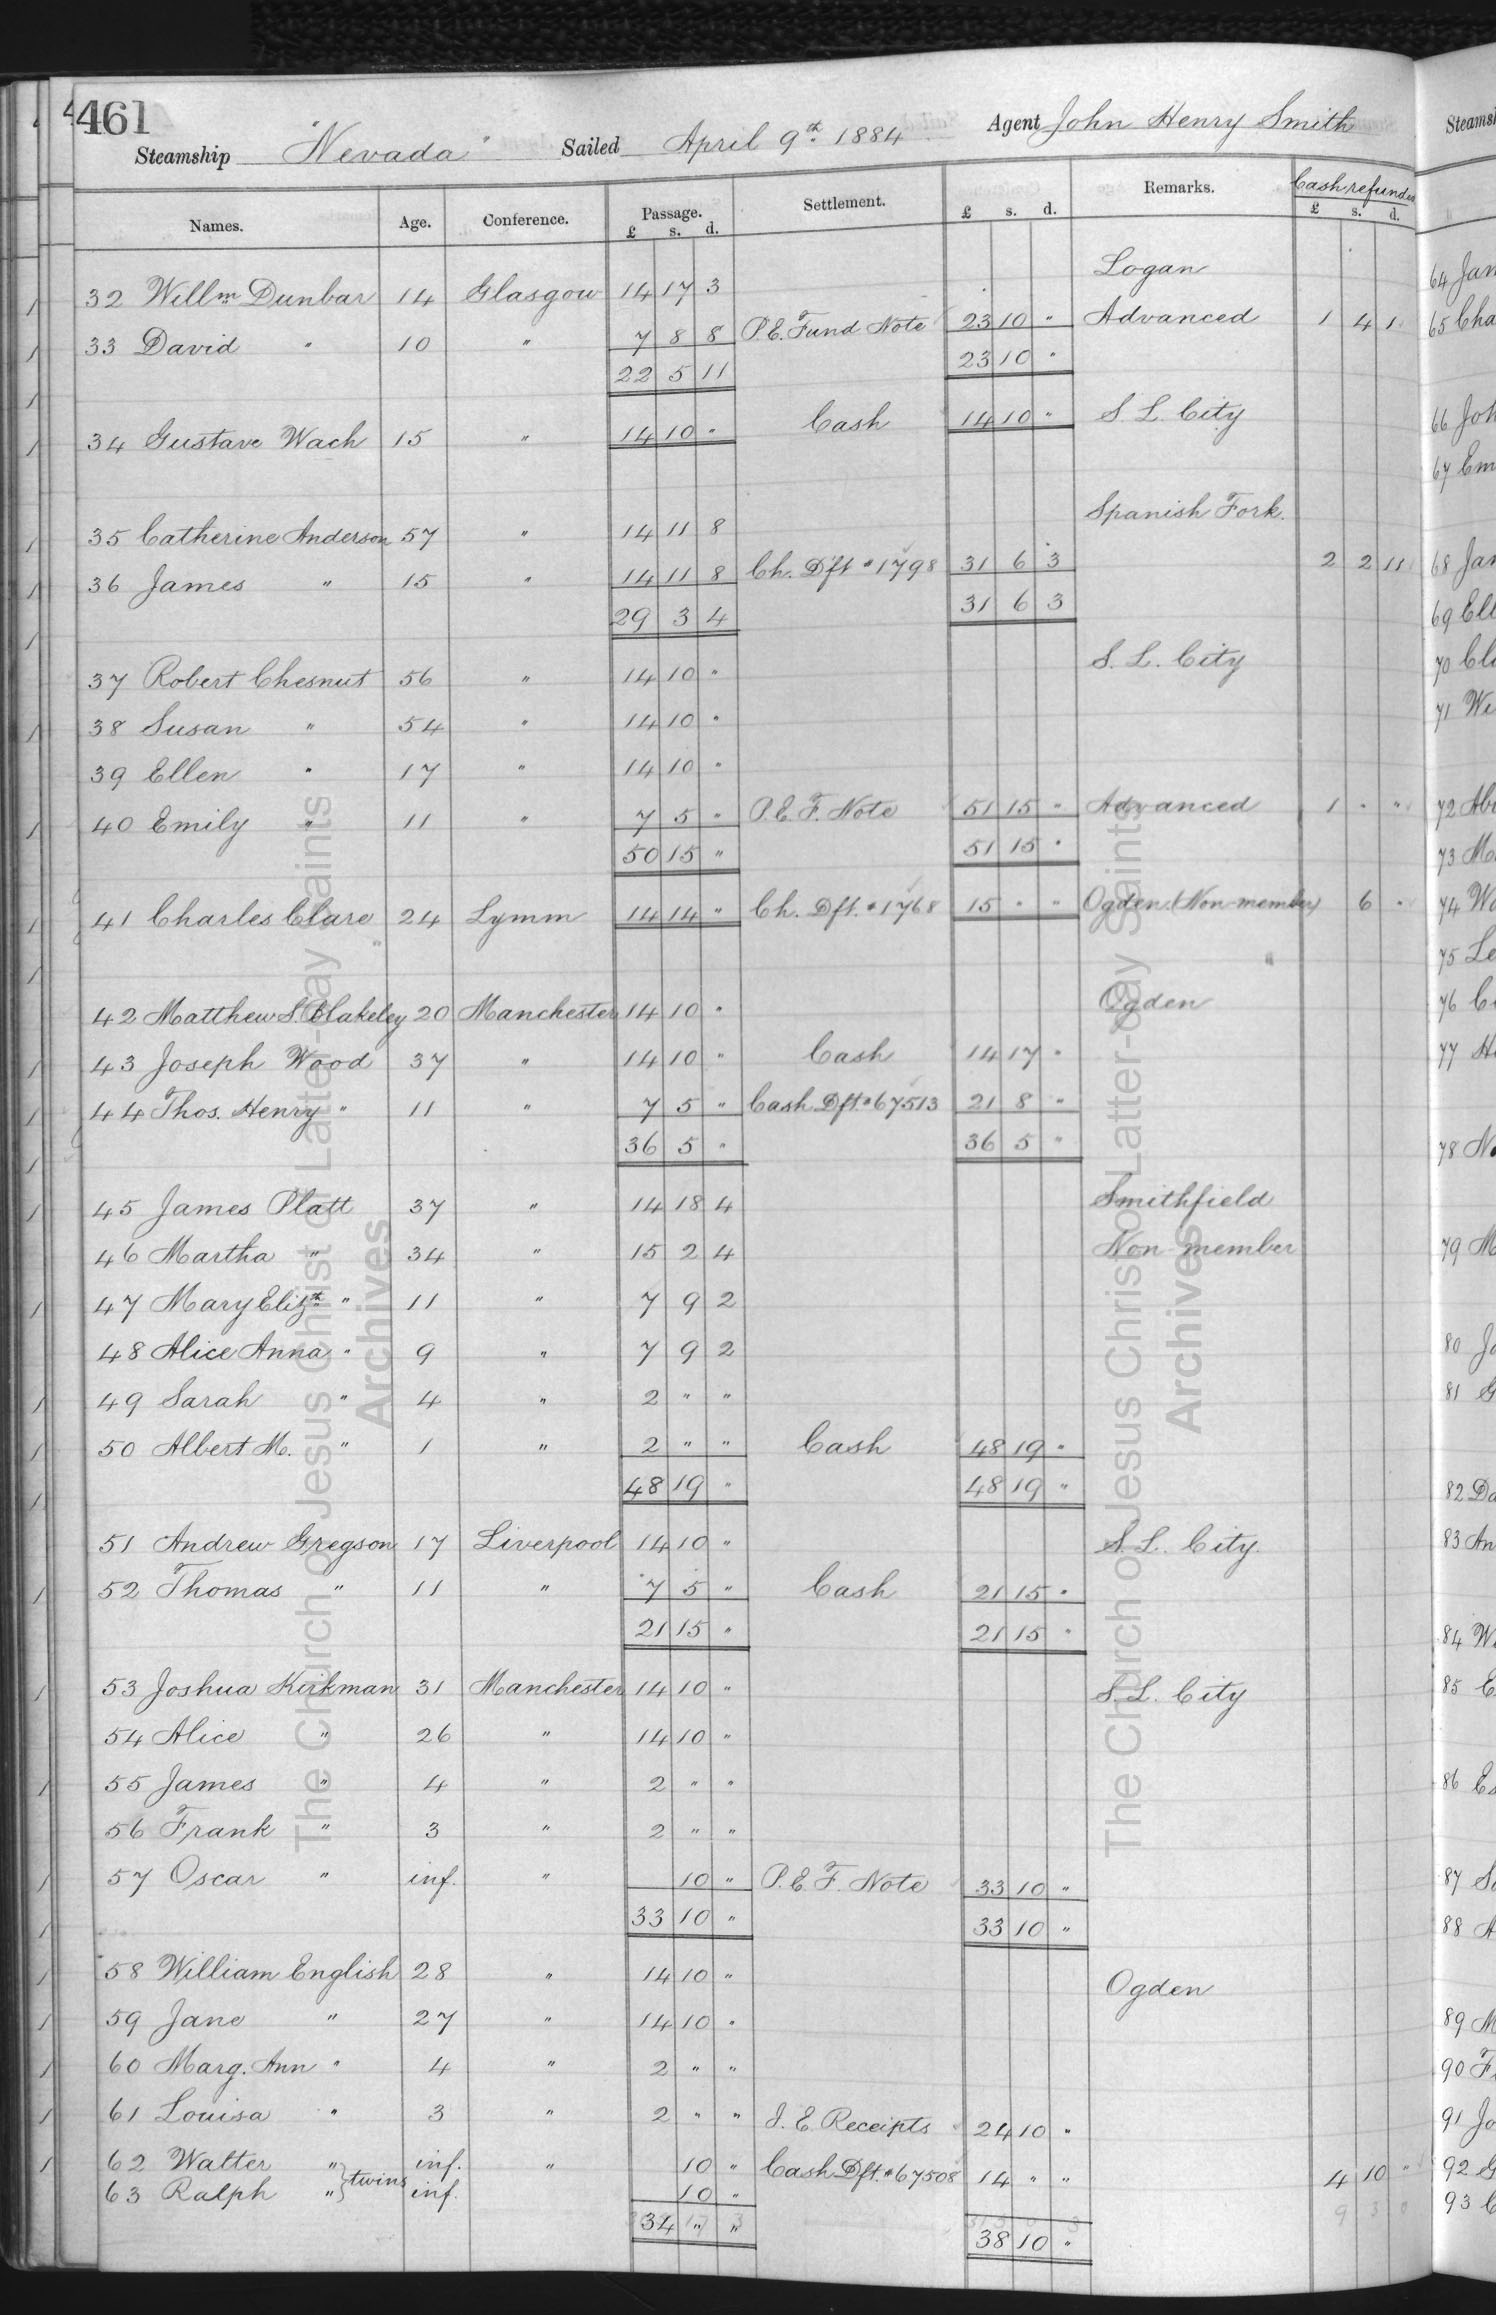 461
Steamship "Nevada" Sailed April 9th 1884 Agent John Henry Smith
Names. Age. Conference. Passage. £ s. d. Settlement. £ s. d. Remarks. Cash refunded £ s. d.
32 Willm Dunbar 14 Glasgow 14 17 3 Logan
33 David " 10 " 7 8 8 P.E. Fund Note 23 10 " Advanced 1 4 1
22 5 11 23 10 "
34 Gustave Wach 15 " 14 10 " Cash 14 10 " S. L. City
35 Catherine Anderson 57 " 14 11 8 Spanish Fork.
36 James " 15 " 14 11 8 Ch. Dft # 1798 31 6 3 2 2 11
29 3 4 31 6 3
37 Robert Chesnut 56 " 14 10 " S. L. City
38 Susan " 54 " 14 10 "
39 Ellen " 17 " 14 10 "
40 Emily " 11 " 7 5 " P.E.F. Note 51 15 " Advanced 1 " "
50 15 " 51 15 "
41 Charles Clare 24 Lymm 14 14 " Ch. Dft. # 1768 15 " " Ogden (Non-member) 6 "
42 Matthew S. Blakeley 20 Manchester 14 10 " Ogden
43 Joseph Wood 37 " 14 10 " Cash 14 17 "
44 Thos. Henry " 11 " 7 5 " Cash Dft. # 67513 21 8 "
36 5 " 36 5 "
45 James Platt 37 " 14 18 4 Smithfield
46 Martha " 34 " 15 2 4 Non-member
47 Mary Elizth " 11 " 7 9 2
48 Alice Anna " 9 " 7 9 2
49 Sarah " 4 " 2 " "
50 Albert M. " 1 " 2 " " Cash 48 19 "
48 19 " 48 19 "
51 Andrew Gregson 17 Liverpool 14 10 " S. L. City.
52 Thomas " 11 " 7 5 " Cash 21 15 "
21 15 " 21 15 "
53 Joshua Kirkman 31 Manchester 14 10 " S. L. City
54 Alice " 26 " 14 10 "
55 James " 4 " 2 " "
56 Frank " 3 " 2 " "
57 Oscar " inf. " 10 " P.E.F. Note 33 10 "
33 10 " 33 10 "
58 William English 28 " 14 10 " Ogden
59 Jane " 27 " 14 10 "
60 Marg. Ann " 4 " 2 " "
61 Louisa " 3 " 2 " " I. E. Receipts 24 10 "
62 Walter " } twins inf. " 10 " Cash Dft. # 67508 14 " " 4 10 "
63 Ralph " inf. 10 "
34 " " 38 10 "
The Church of Jesus Christ of Latter-day Saints
Archives
The Church of Jesus Christ of Latter-day Saints
Archives
64
65 Cha
66 Joh
67 Em
68
69 Ell
70
71
72
73
74
75 Le
76
77
78
79 M
80
81
82
83 An
84
85
86
87
88
89
90
91
92
93